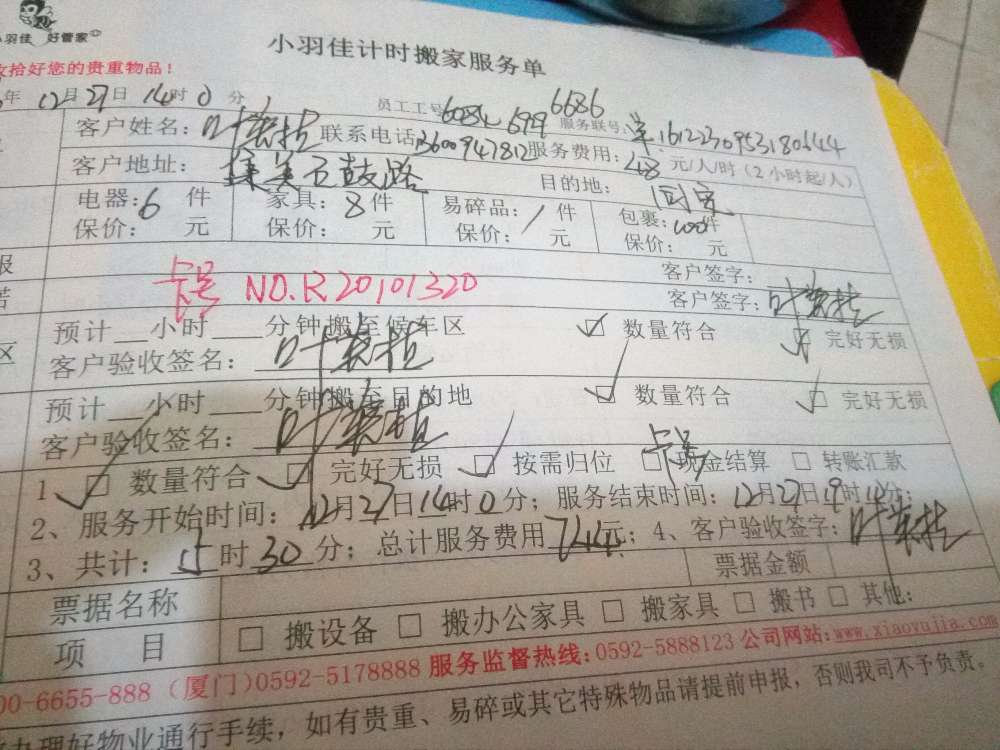 小羽佳 好管家
小羽佳计时搬家服务单
收拾好您的贵重物品!
年12月27日14时0分
员工工号 6084 6919 6686
服务联号: 1612230953180644
客户姓名: 联系电话:13600947812 服务费用:48元/人/时(2小时起/人)
客户地址: 集美石鼓路 目的地: 同安
电器:6件 家具:8件 易碎品:/件 包裹:100件
保价: 元 保价: 元 保价: 元 保价: 元
客户签字:
卡号 NO.R20101320
客户签字:
预计__小时___分钟搬至候车区 ☑ 数量符合 ☑ 完好无损
客户验收签名:
预计__小时___分钟搬至目的地 ☑ 数量符合 ☑ 完好无损
客户验收签名:
1、☑ 数量符合 ☑ 完好无损 ☑ 按需归位 □ 现金结算 卡号 □ 转账汇款
2、服务开始时间:12月27日14时0分;服务结束时间:12月27日19时 分;
3、共计:5时30分;总计服务费用744元;4、客户验收签字:
票据名称 票据金额
项 目 □ 搬设备 □ 搬办公家具 □ 搬家具 □ 搬书 □ 其他:
00-6655-888(厦门)0592-5178888 服务监督热线:0592-5888123 公司网站:www.xiaoyujia.com
办理好物业通行手续,如有贵重、易碎或其它特殊物品请提前申报,否则我司不予负责。